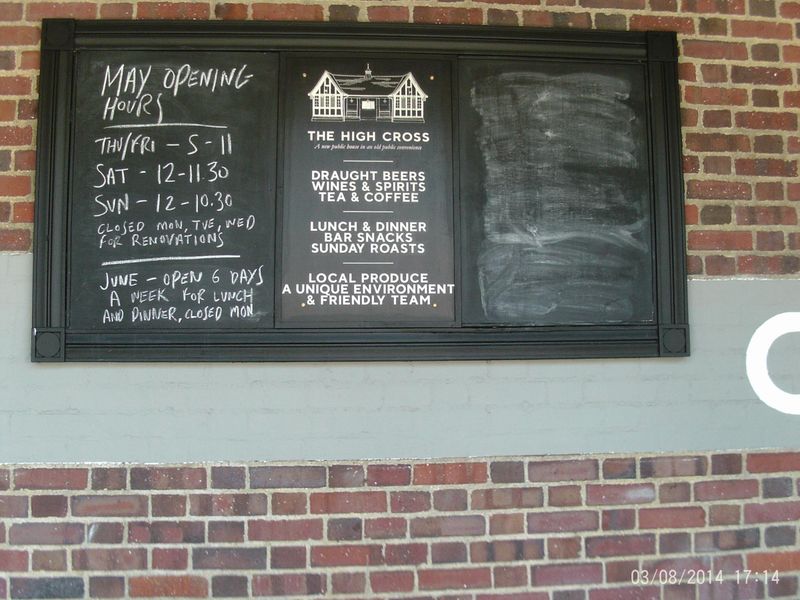 MAY OPENING
HOURS
THU/FRI - 5 - 11
SAT - 12-11.30
SUN - 12-10.30
CLOSED MON, TUE, WED
FOR RENOVATIONS
JUNE - OPEN 6 DAYS
A WEEK FOR LUNCH
AND DINNER, CLOSED MON
THE HIGH CROSS
A new public house in an old public convenience
DRAUGHT BEERS
WINES & SPIRITS
TEA & COFFEE
LUNCH & DINNER
BAR SNACKS
SUNDAY ROASTS
LOCAL PRODUCE
A UNIQUE ENVIRONMENT
& FRIENDLY TEAM
03/08/2014 17:14